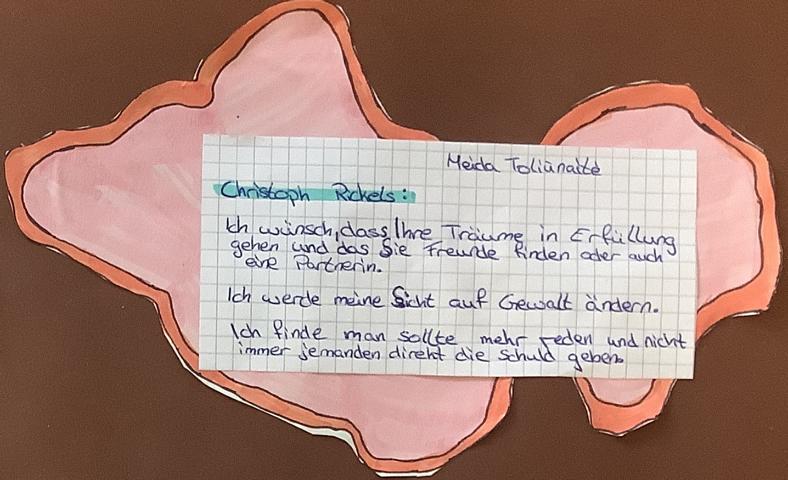 Meida Toliūnaitė
Christoph Rickels:
Ich wünsch, dass Ihre Träume in Erfüllung
gehen und das Sie Freunde finden oder auch
eine Partnerin.
Ich werde meine Sicht auf Gewalt ändern.
Ich finde man sollte mehr reden und nicht
immer jemanden direkt die schuld geben.